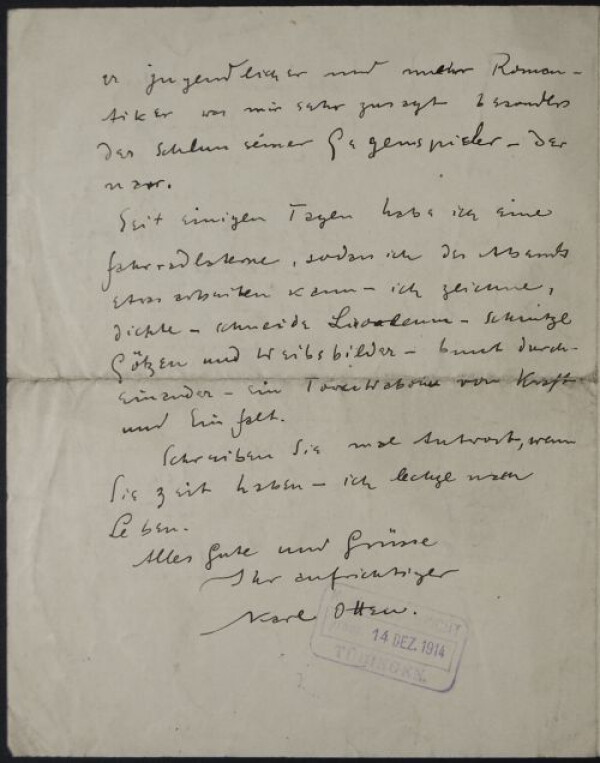 er jugendlicher und mehr Roman-
tiker was mir sehr zusagt besonders
der Schluss seiner Gegenspieler – der
Narr.
Seit einigen Tagen habe ich eine
Fahrradlaterne, sodass ich des Abends
etwas arbeiten kann – ich zeichne,
dichte – schneide Linoleum – schnitze
Götzen und Weibsbilder – bunt durch-
einander – ein von Kraft
und Einfalt.
Schreiben Sie mal Antwort, wenn
Sie Zeit haben – ich lechze nach
Leben.
Alles Gute und Grüsse
Ihr aufrichtiger
Karl Otten.
14 DEZ. 1914
TÜBINGEN.